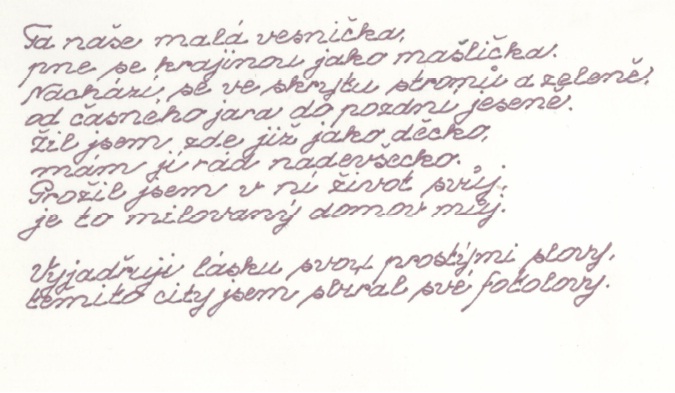 Ta naše malá vesnička,
pne se krajinou jako mašlička.
Nachází se ve skrytu stromů a zeleně,
od časného jara do pozdní jeseně.
Žil jsem zde již jako děcko,
mám ji rád nadevšecko.
Prožil jsem v ní život svůj,
je to milovaný domov můj.
Vyjadřuji lásku svou prostými slovy,
těmito city jsem sbíral své fotolovy.